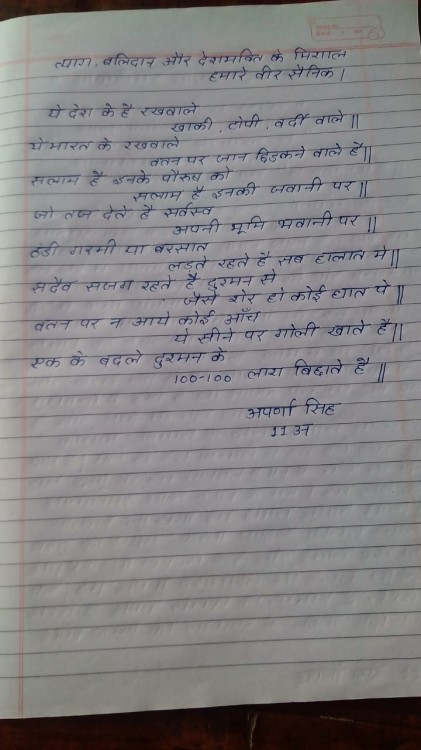 त्याग, बलिदान और देशभक्ति के मिशाल
हमारे वीर सैनिक।
ये देश के है रखवाले
खाकी, टोपी, वर्दी वाले॥
ये भारत के रखवाले
वतन पर जान छिडकने वाले है॥
सलाम है इनके पौरुष को
सलाम है इनकी जवानी पर॥
जो तज देते है सर्वस्व
अपनी भूमि भवानी पर॥
ठंडी गरमी या बरसात
लड़ते रहते है सब हालात मे॥
सदैव सजग रहते है दुश्मन से
जैसे शेर हो कोई घात पे॥
वतन पर न आये कोई आँच
ये सीने पर गोली खाते है॥
एक के बदले दुश्मन के
100-100 लाश बिछाते है॥
अपर्णा सिंह
11अ